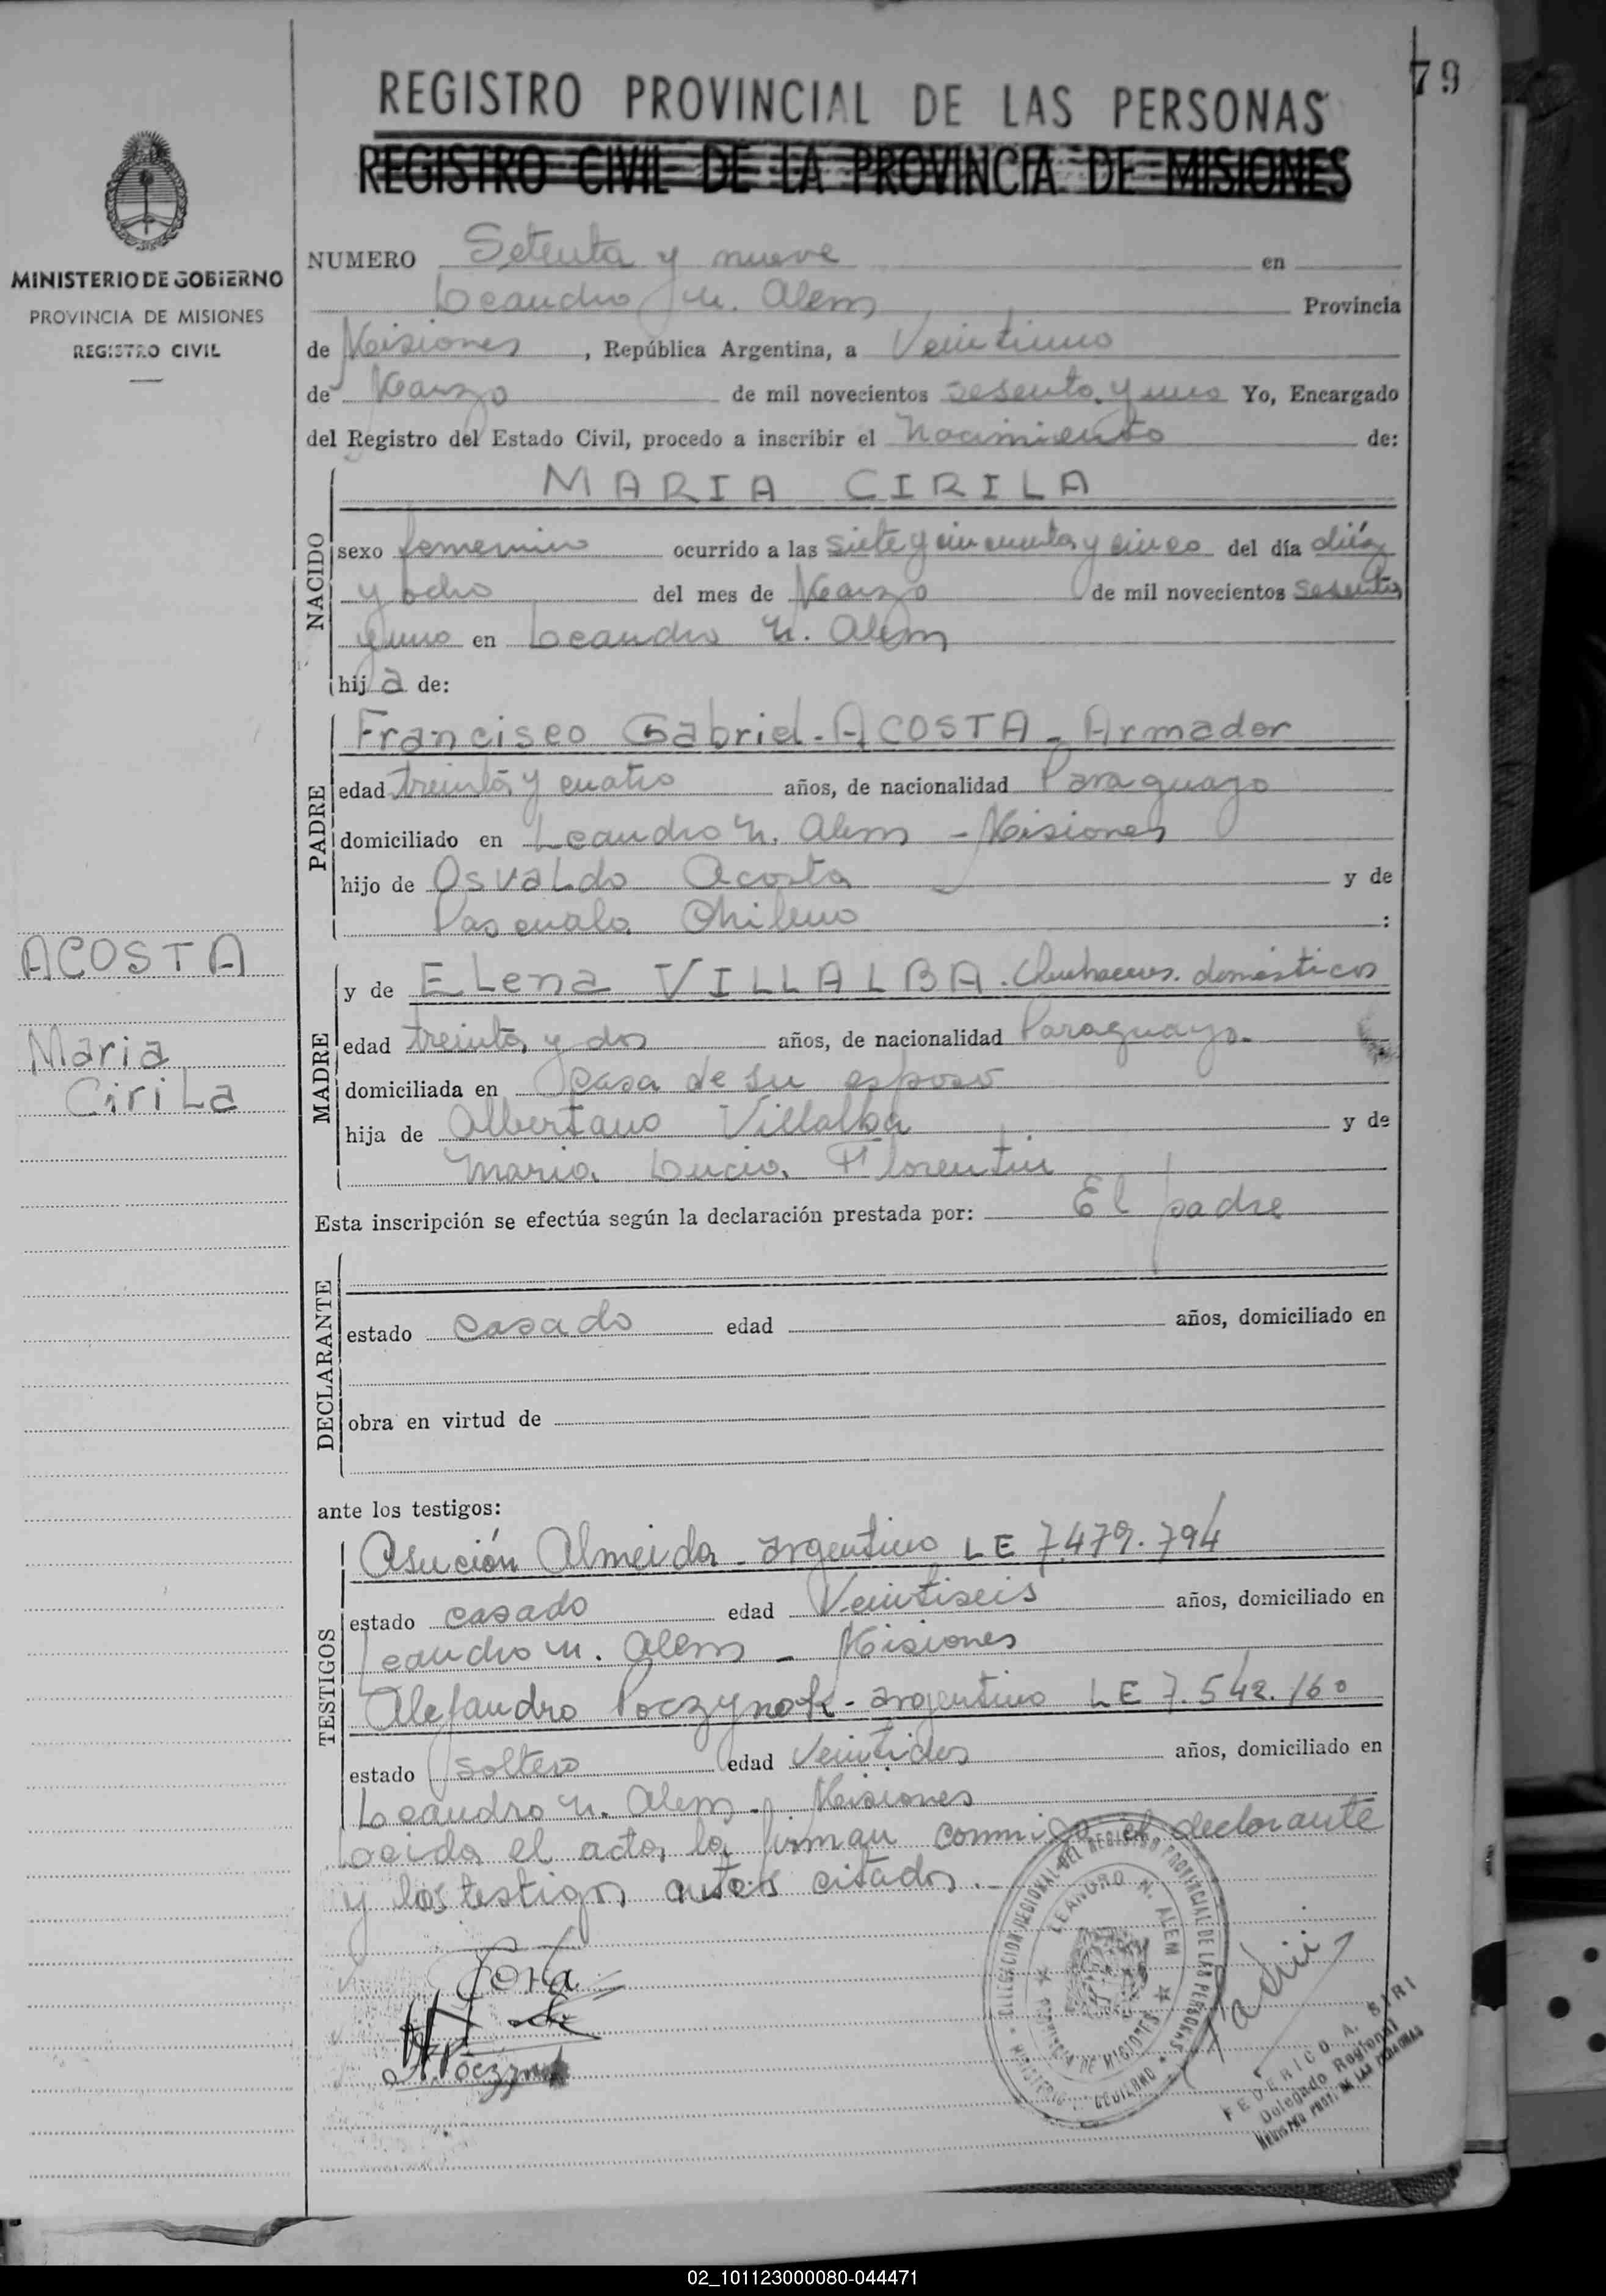 79
REGISTRO PROVINCIAL DE LAS PERSONAS
REGISTRO CIVIL DE LA PROVINCIA DE MISIONES
MINISTERIO DE GOBIERNO
PROVINCIA DE MISIONES
REGISTRO CIVIL
NUMERO Setenta y nueve en
Leandro N. Alem Provincia
de Misiones, República Argentina, a Veintiuno
de Marzo de mil novecientos sesenta y uno Yo, Encargado
del Registro del Estado Civil, procedo a inscribir el Nacimiento de:
NACIDO
MARIA CIRILA
sexo femenino ocurrido a las siete y cincuenta y cinco del día diéz
y ocho del mes de Marzo de mil novecientos sesenta
y uno en Leandro N. Alem
hija de:
PADRE
Francisco Gabriel - ACOSTA - Armador
edad treinta y cuatro años, de nacionalidad Paraguayo
domiciliado en Leandro N. Alem - Misiones
hijo de Osvaldo Acosta y de
Pascuala Chileno :
ACOSTA
Maria
Cirila
MADRE
y de Elena VILLALBA. Quehaceres domésticos
edad treinta y dos años, de nacionalidad Paraguaya.
domiciliada en casa de su esposo
hija de Albertano Villalba y de
Maria Lucia Florentin
Esta inscripción se efectúa según la declaración prestada por: El padre
DECLARANTE
estado casado edad años, domiciliado en
obra en virtud de
ante los testigos:
TESTIGOS
Asución Almeida - argentino LE 7.479.794
estado casado edad Veintiseis años, domiciliado en
Leandro N. Alem - Misiones
Alejandro Poczynok - argentino LE 7.542.160
estado soltero edad Veintidos años, domiciliado en
Leandro N. Alem - Misiones
Leida el acta, la firman conmigo el declarante
y los testigos antes citados.-
DELEGACION REGIONAL DEL REGISTRO PROVINCIAL DE LAS PERSONAS
LEANDRO N. ALEM
PROVINCIA DE MISIONES
MINISTERIO GOBIERNO
A Poczynok
FEDERICO A. SIRI
Delegado Regional
REGISTRO PROV. DE LAS PERSONAS
02_101123000080-044471